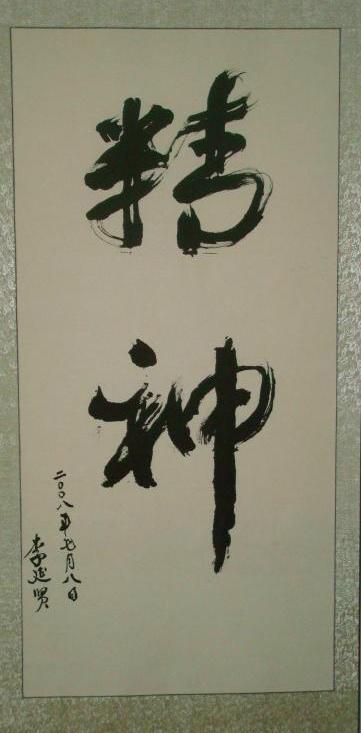 精神
二〇〇八年七月八日
李延贤